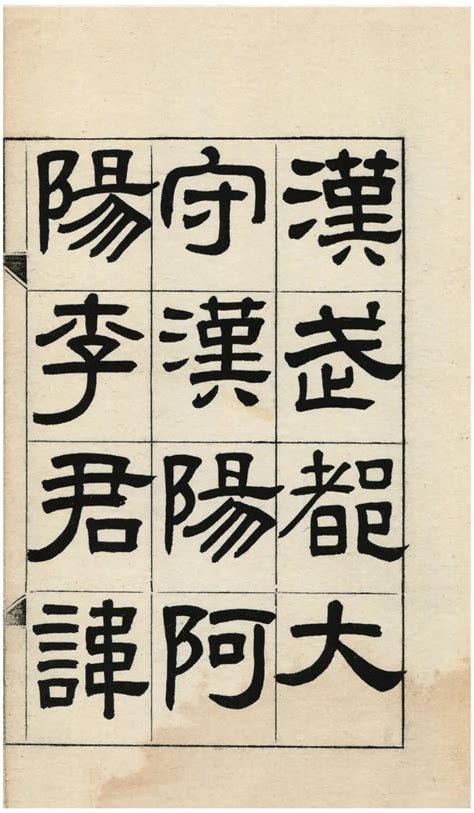 漢武都大
守漢陽阿
陽李君諱